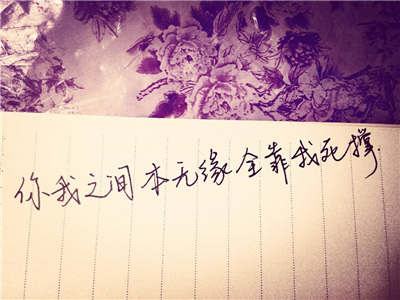 你我之间本无缘全靠我死撑.